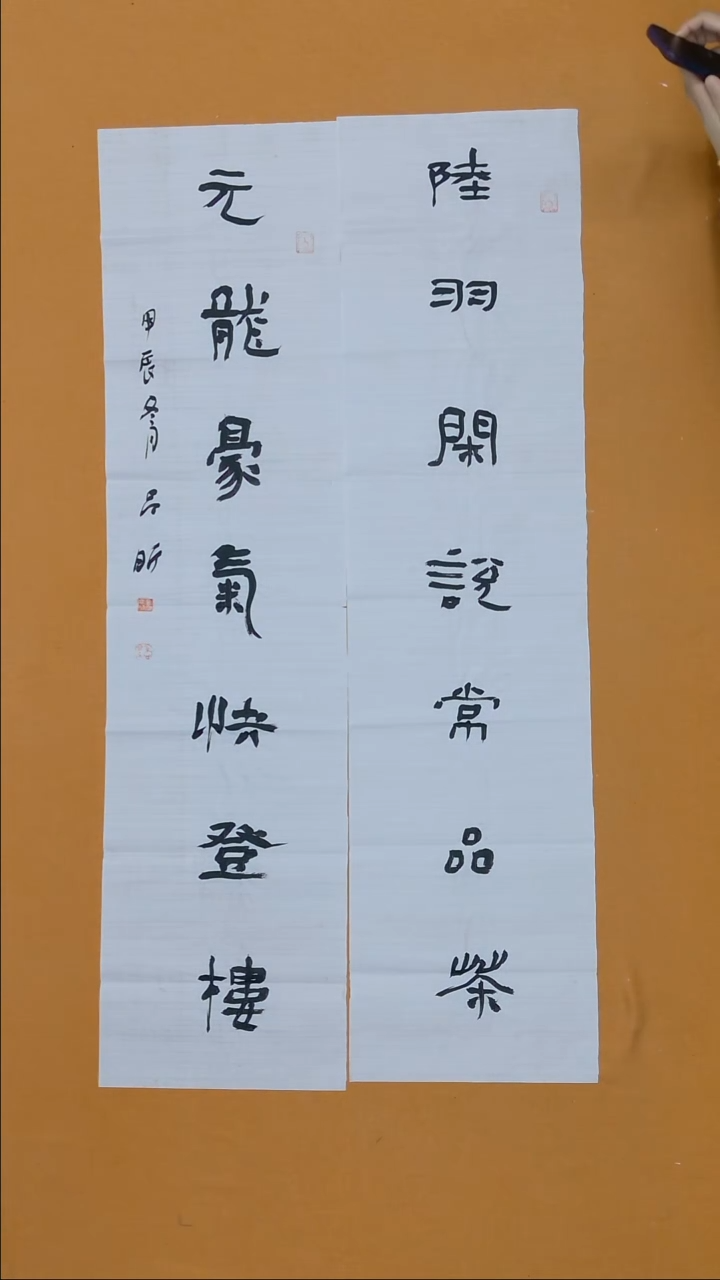 陸羽閑說常品茶
元龍豪氣快登樓
甲辰冬月呂昕